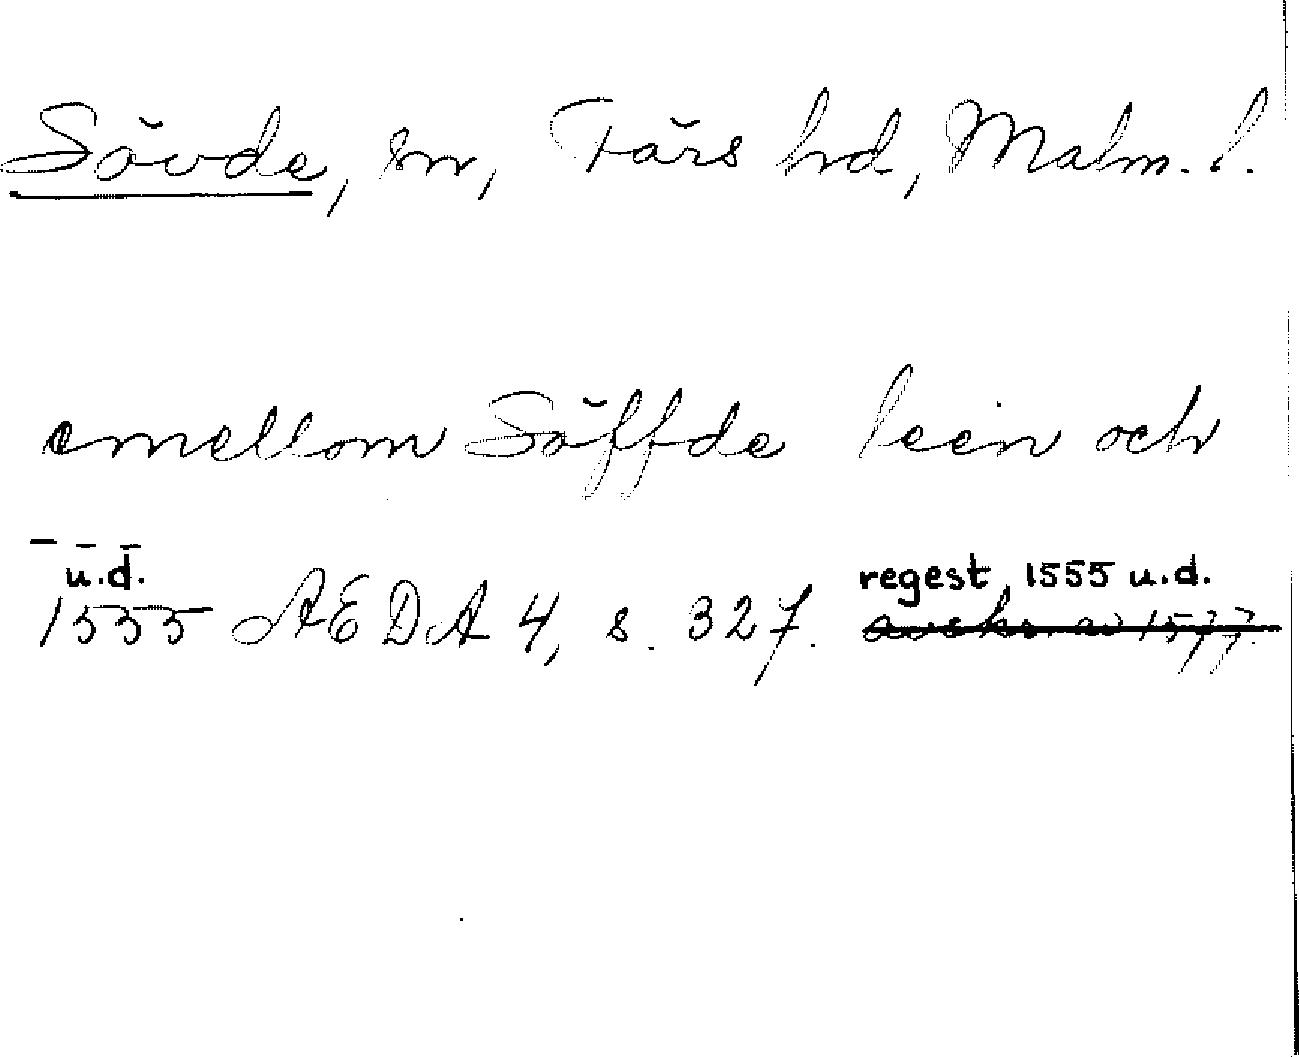 Sövde, sn, Färs hrd, Malm. l.
emellom Söffde leen och
- - -
u.d.
1555 AEDA 4, s. 327. regest 1555 u.d.
avskr. av 1577.